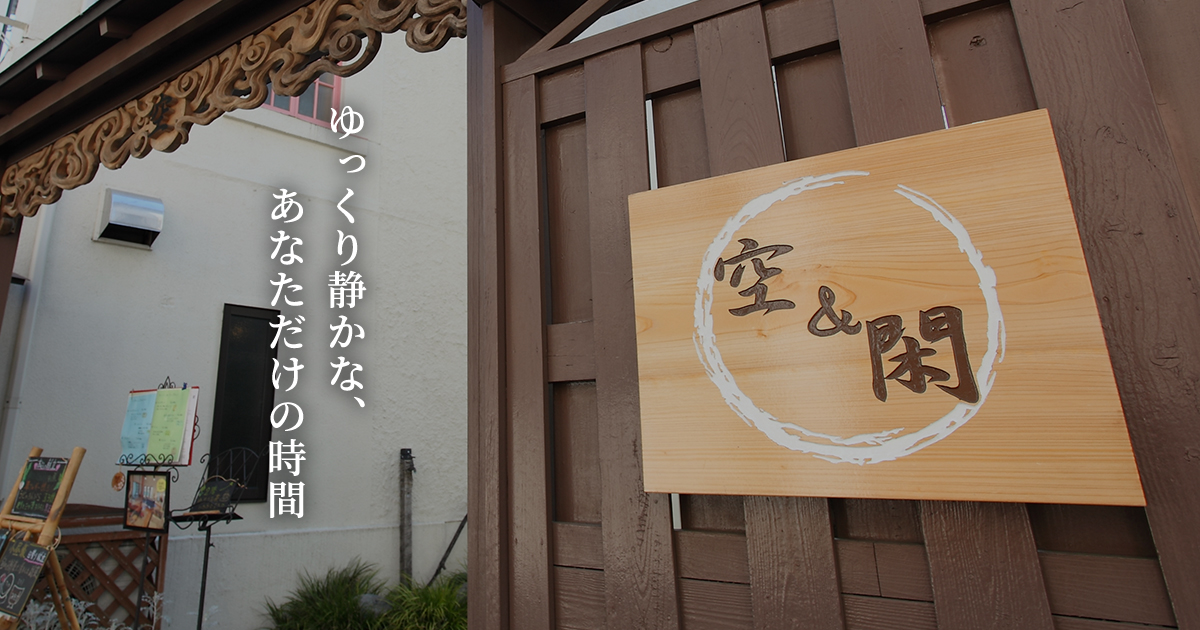 ゆっくり静かな、
あなただけの時間
空
&
閑